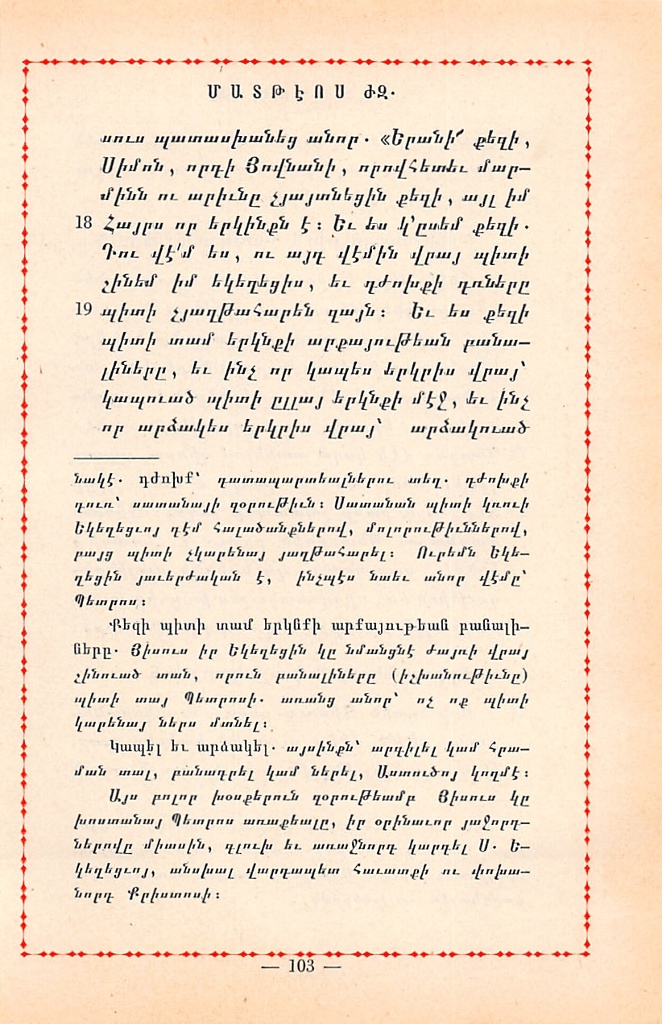 ՄԱՏԹԷՈՍ ԺԶ.
սուս պատասխանեց անոր. «Երանի՜ քեզի,
Սիմոն, որդի Յովնանի, որովհետեւ մար-
մինն ու արիւնը չյայտնեցին քեզի, այլ իմ
18 Հայրս որ երկինքն է։ Եւ ես կ՚ըսեմ քեզի.
Դու վէ՛մ ես, ու այդ վէմին վրայ պիտի
շինեմ իմ եկեղեցիս, եւ դժոխքի դռները
19 պիտի չյաղթահարեն զայն։ Եւ ես քեզի
պիտի տամ երկնքի արքայութեան բանա-
լիները, եւ ինչ որ կապես երկրիս վրայ՝
կապուած պիտի ըլլայ երկնքի մէջ, եւ ինչ
որ արձակես երկրիս վրայ՝ արձակուած
նակէ. դժոխք՝ դատապարտեալներու տեղ. դժոխքի
դուռ՝ սատանայի զօրութիւն։ Սատանան պիտի կռուի
Եկեղեցւոյ դէմ հալածանքներով, մոլորութիւններով,
բայց պիտի չկարենայ յաղթահարել։ Ուրեմն Եկե-
ղեցին յաւերժական է, ինչպէս նաեւ անոր վէմը՝
Պետրոս։
Քեզի պիտի տամ երկնքի արքայութեան բանալի-
ները. Յիսուս իր Եկեղեցին կը նմանցնէ ժայռի վրայ
շինուած տան, որուն բանալիները (իշխանութիւնը)
պիտի տայ Պետրոսի. առանց անոր՝ ոչ ոք պիտի
կարենայ ներս մտնել։
Կապել եւ արձակել. այսինքն՝ արգիլել կամ հրա-
ման տալ, բանադրել կամ ներել, Աստուծոյ կողմէ։
Այս բոլոր խօսքերուն զօրութեամբ Յիսուս կը
խոստանայ Պետրոս առաքեալը, իր օրինաւոր յաջորդ-
ներովը միասին, գլուխ եւ առաջնորդ կարգել Ս. Ե-
կեղեցւոյ, անսխալ վարդապետ հաւատքի ու փոխա-
նորդ Քրիստոսի։
— 103 —